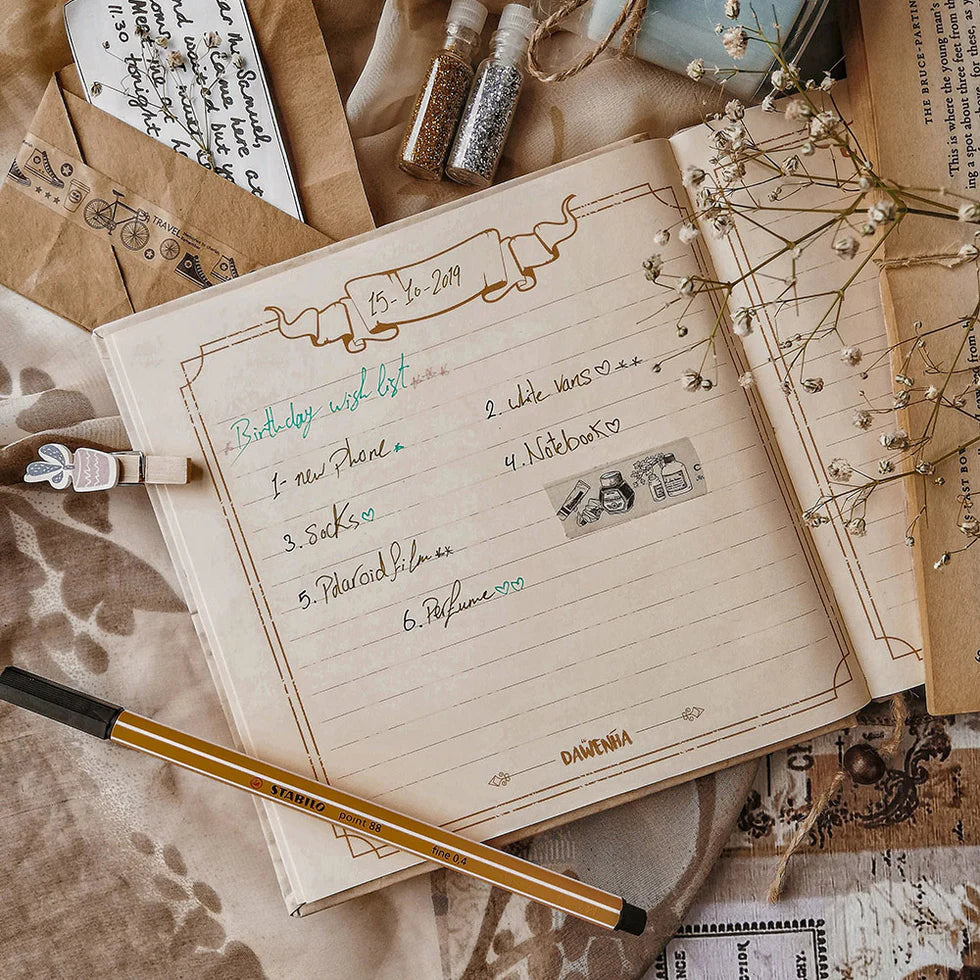 15-10-2019
Birthday wish list
1- new Phone
2. white vans
3. Socks
4. Notebook
5. Polaroid film
6. Perfume
DAWENHA
STABILO point 88 fine 0,4
TRAVEL
Samuel,
come here at
and waited but y
me at
tonight
11.30
THE BRUCE-PARTIN
"This is where the young man's
ing a spot about three feet from th